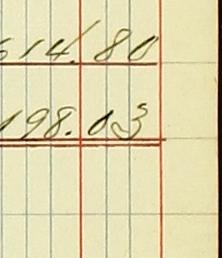 614.80
198.03